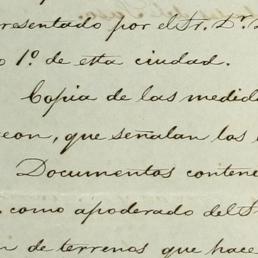 resentado por el Sr. Dr.
1º. de esta ciudad.
Copia de las medida
eon, que señalan los l
Documentos contene
como apoderado del S
n de terrenos que hace